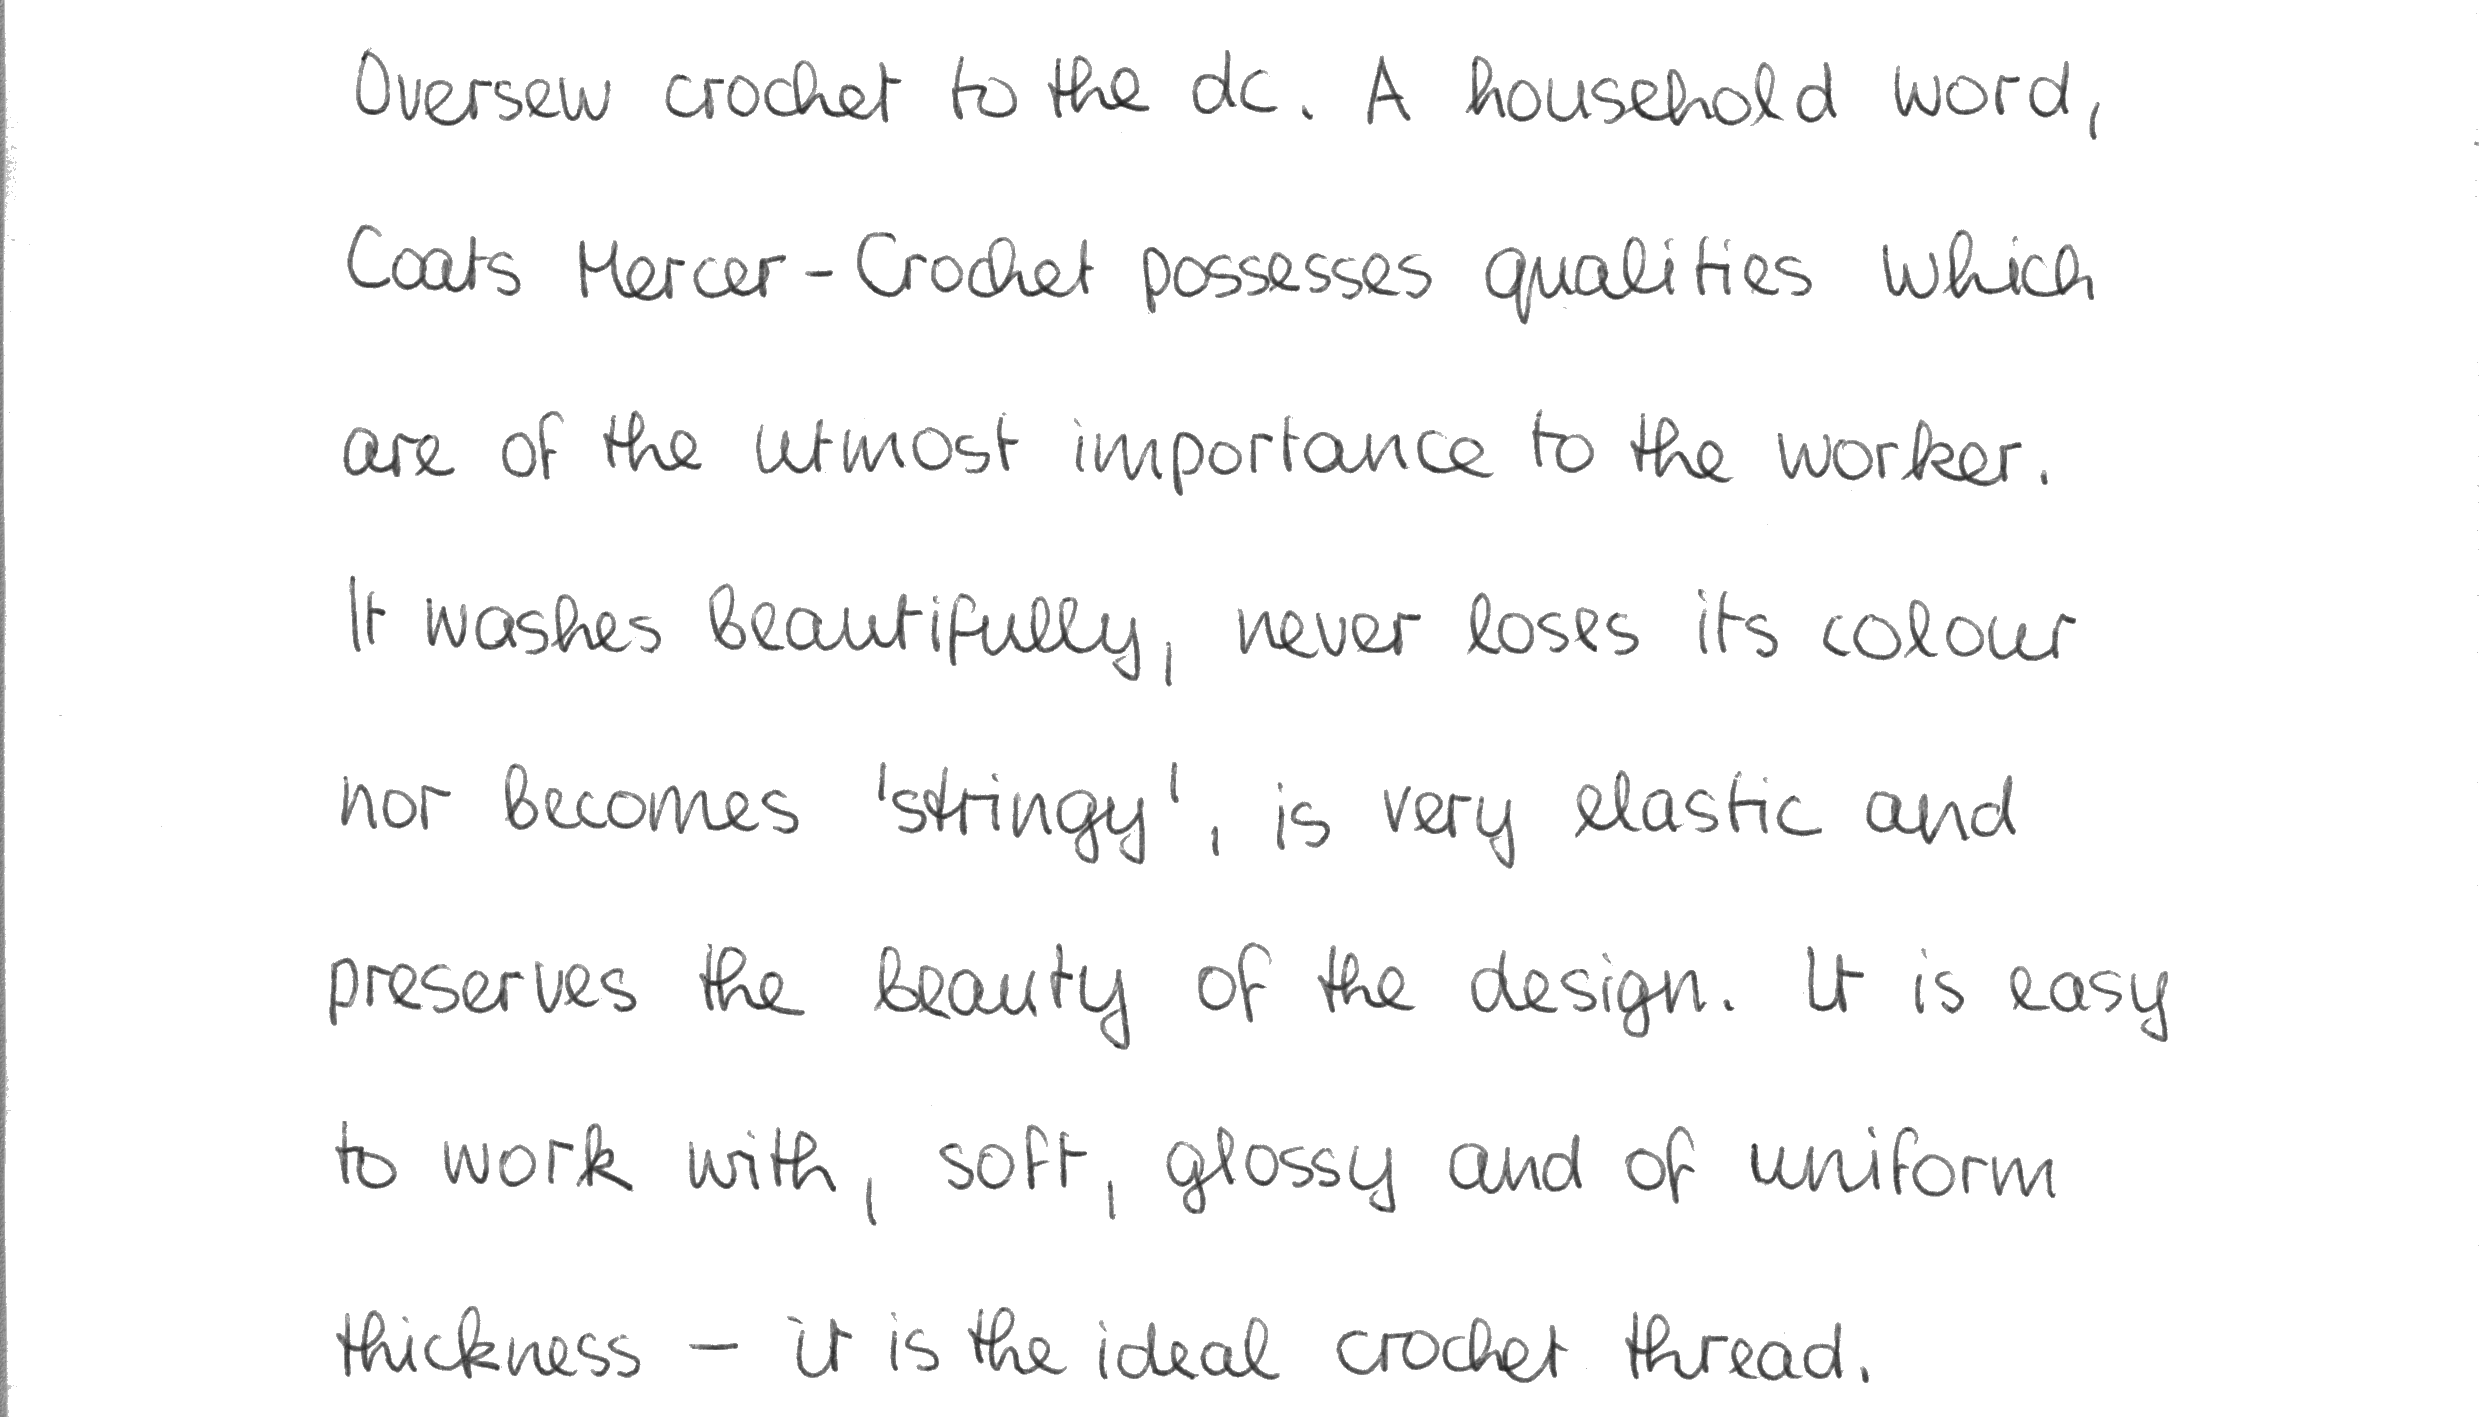 Oversew crochet to the dc. A household word,
Coats Mercer-Crochet possesses qualities which
are of the utmost importance to the worker.
It washes beautifully, never loses its colour
nor becomes 'stringy', is very elastic and
preserves the beauty of the design. It is easy
to work with, soft, glossy and of uniform
thickness - it is the ideal crochet thread.